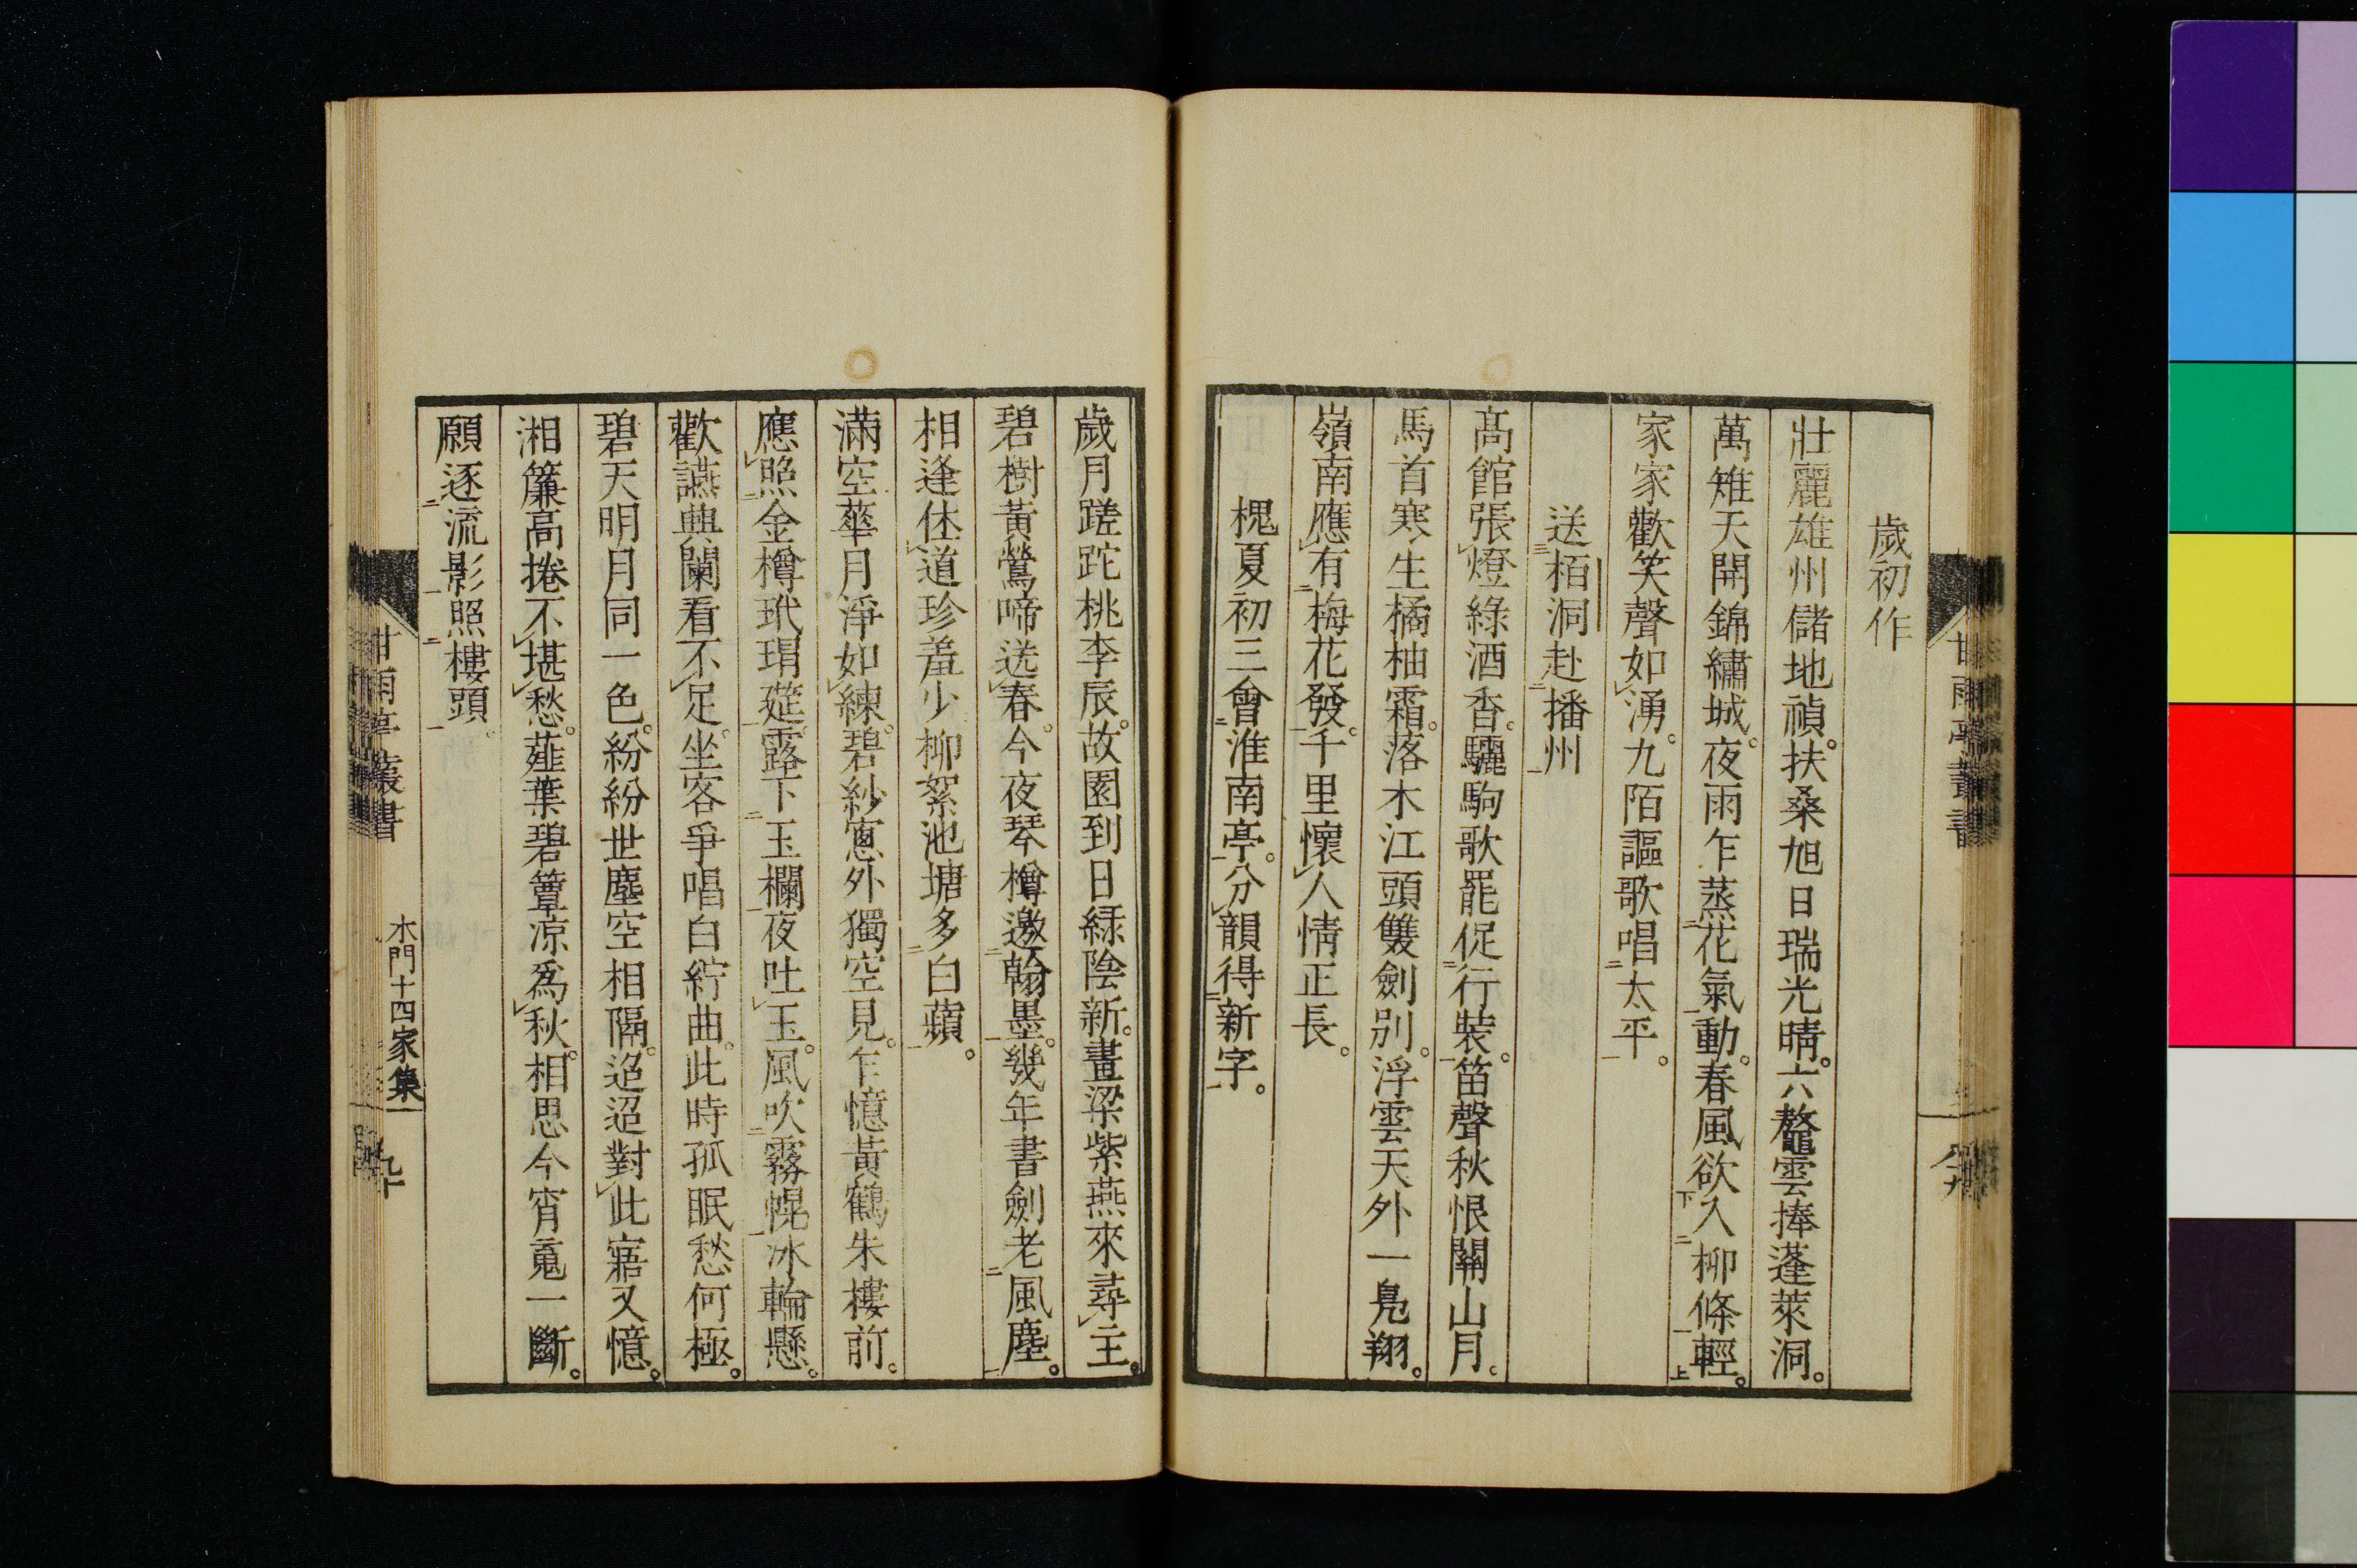 歲初作
壯麗雄州儲地禎。扶桑旭日瑞光晴。六鼇雲捧蓬萊洞。
萬雉天開錦繡城。夜雨乍蒸花氣動。春風欲入柳條輕。
家家歡笑聲如湧。九陌謳歌唱太平。
送栢洞赴播州
高館張燈綠酒香。驪駒歌罷促行裝。笛聲秋恨關山月。
馬首寒生橘柚霜。落木江頭雙劍別。浮雲天外一鳧翔。
嶺南應有梅花發。千里懷人情正長。
槐夏初三會淮南亭。分韻得新字。
甘雨亭叢書
歲月蹉跎桃李辰。故園到日綠陰新。畫梁紫燕來尋主。
碧樹黃鶯啼送春。今夜琴樽邀翰墨。幾年書劍老風塵。
相逢休道珍羞少。柳絮池塘多白蘋。
滿空華月淨如練。碧紗窻外獨空見。乍憶黃鶴朱樓前。
應照金樽玳瑁筵。露下玉欄夜吐玉。風吹霧幌冰輪懸。
歡讌興闌看不足。坐客爭唱白紵曲。此時孤眠愁何極。
碧天明月同一色。紛紛世塵空相隔。迢迢對此寤又憶。
湘簾高捲不堪愁。薤葉碧簟凉爲秋。相思今宵夐一斷。
願逐流影照樓頭。
甘雨亭叢書
木門十四家集
九十